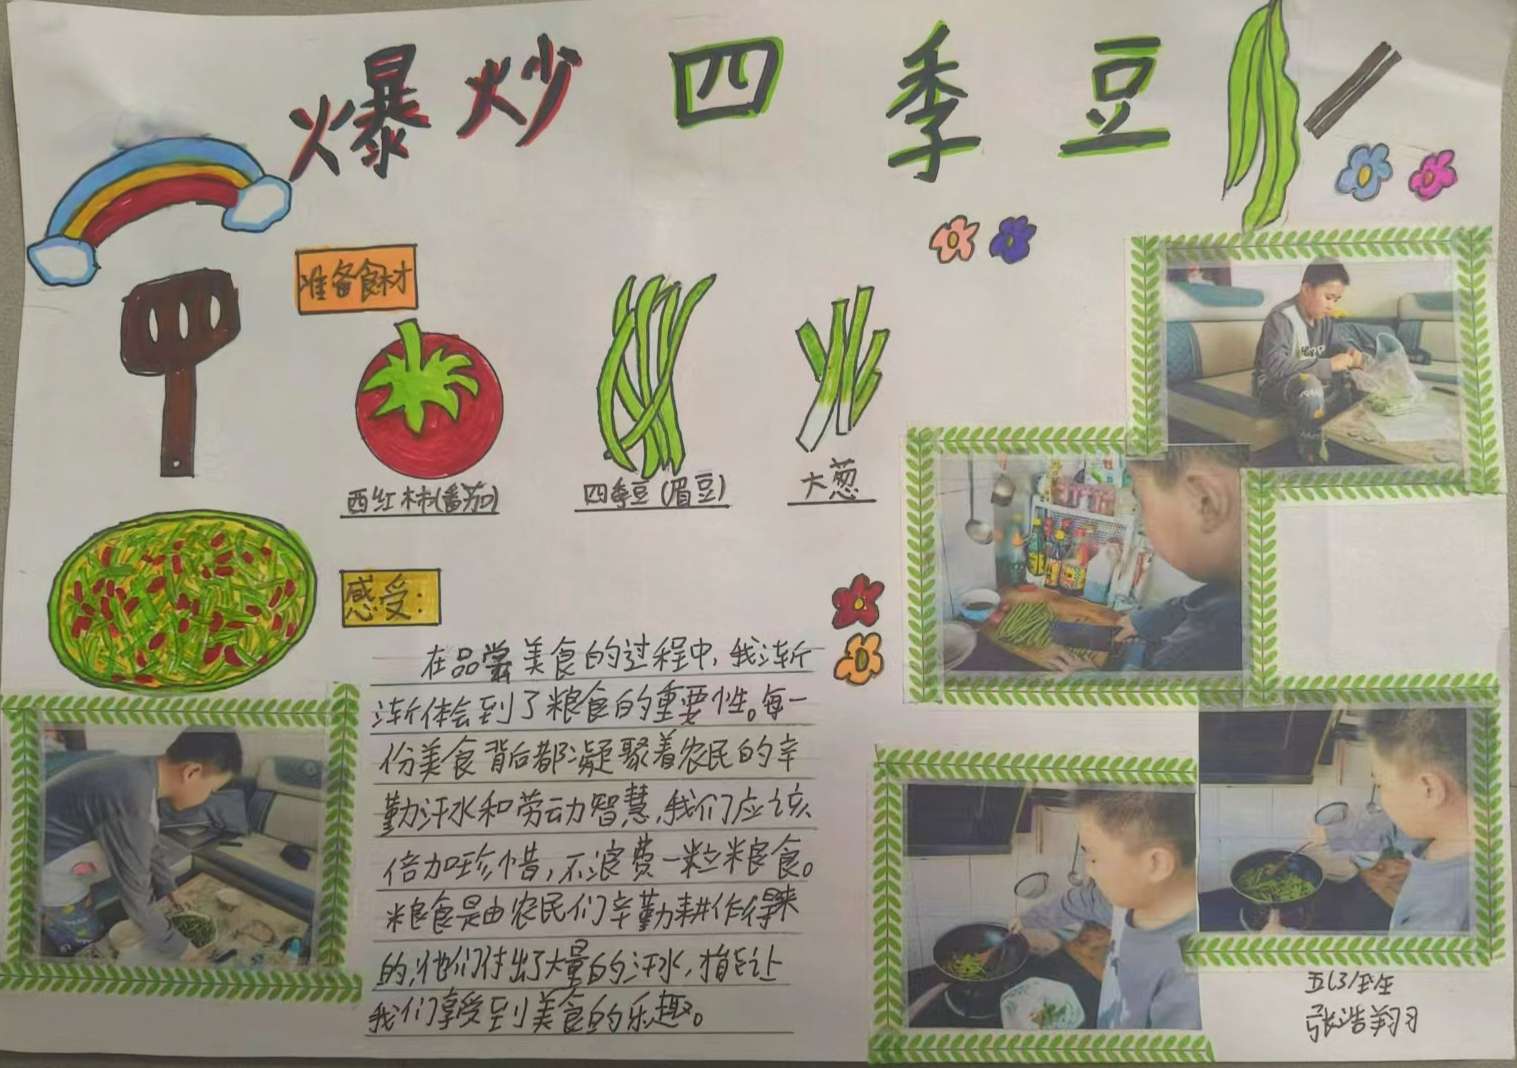 爆炒四季豆
准备食材
西红柿(番茄)
四季豆(眉豆)
大葱
感受:
在品尝美食的过程中,我渐
渐体会到了粮食的重要性。每一
份美食背后都凝聚着农民的辛
勤汗水和劳动智慧,我们应该
倍加珍惜,不浪费一粒粮食。
粮食是由农民们辛勤耕作得来
的,他们付出了大量的汗水,才能让
我们享受到美食的乐趣。
五(3)班
张浩翔